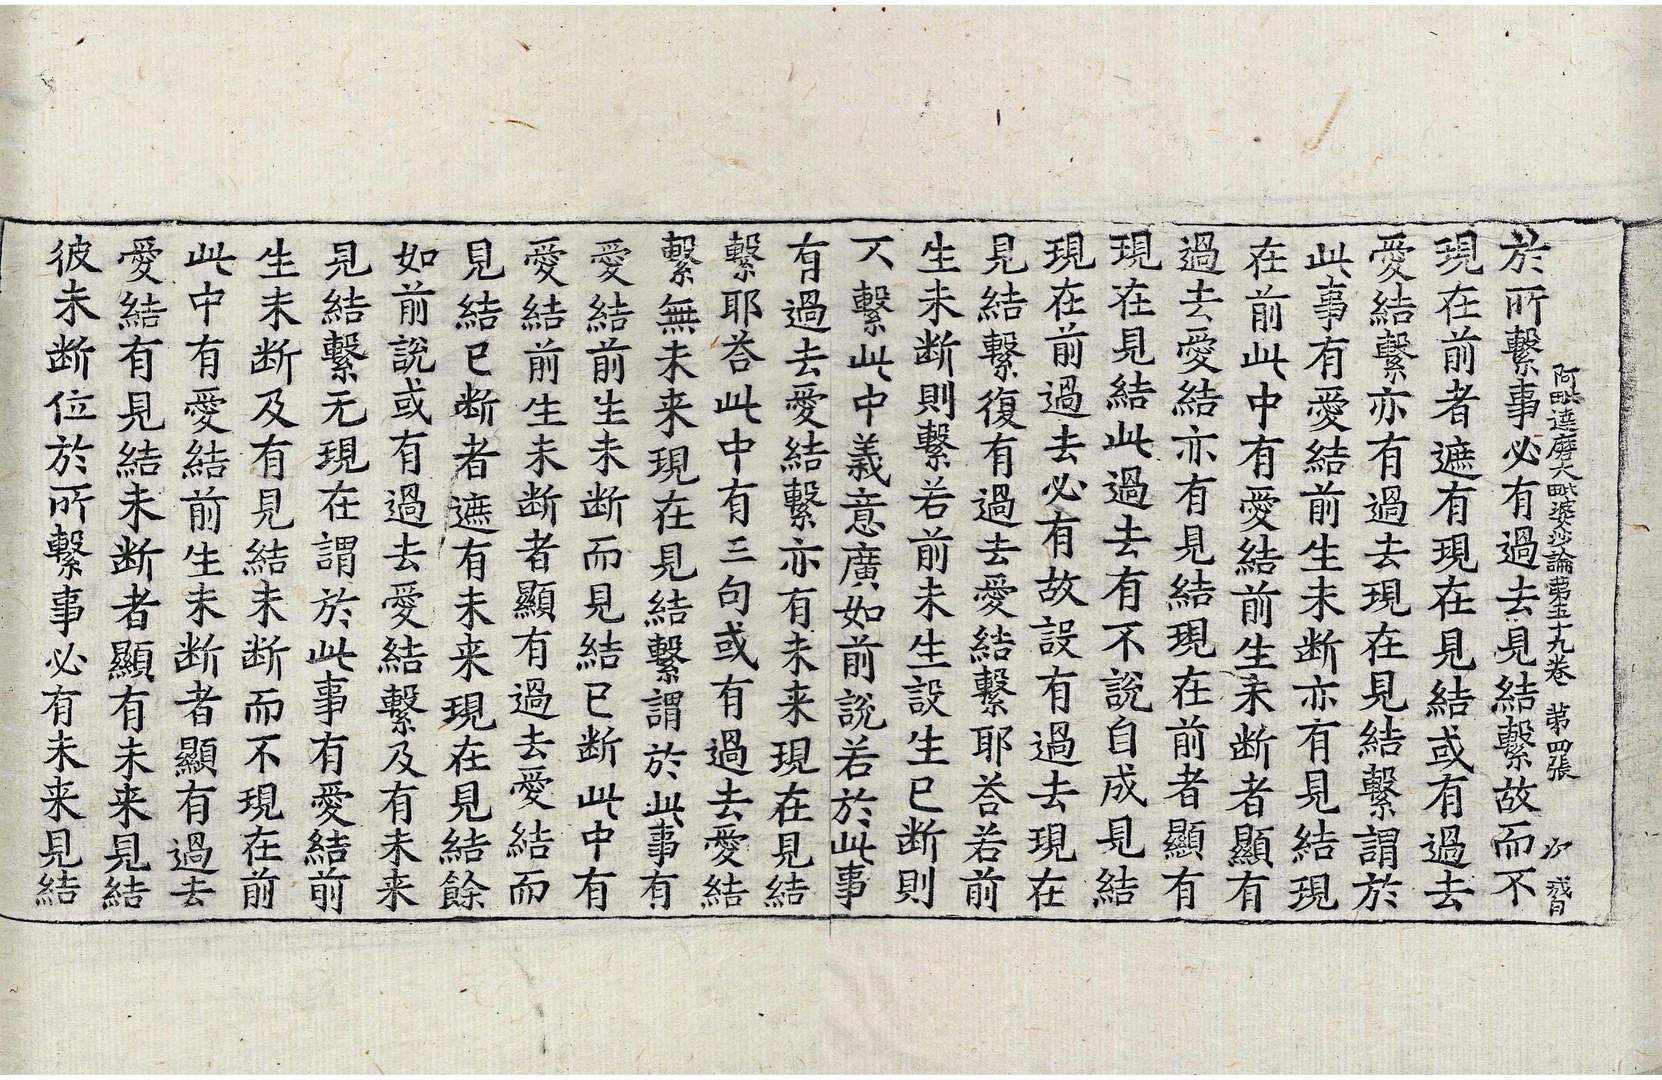 阿毗達磨大毗婆沙論第五十九卷 第四張
於所繫事必有過去見結繫故而不
現在前者遮有現在見結或有過去
愛結繫亦有過去現在見結繫謂於
此事有愛結前生未断亦有見結現
在前此中有愛結前生未断者顯有
過去愛結亦有見結現在前者顯有
現在見結此過去有不說自成見結
現在前過去必有故設有過去現在
見結繫復有過去愛結繫耶荅若前
生未断則繫若前未生設生已断則
不繫此中義意廣如前說若於此事
有過去愛結繫亦有未来現在見結
繫耶荅此中有三句或有過去愛結
繫無未来現在見結繫謂於此事有
愛結前生未断而見結已断此中有
愛結前生未断者顯有過去愛結而
見結已断者遮有未来現在見結餘
如前說或有過去愛結繫及有未来
見結繫无現在謂於此事有愛結前
生未断及有見結未断而不現在前
此中有愛結前生未断者顯有過去
愛結有見結未断者顯有未来見結
彼未断位於所繫事必有未来見結